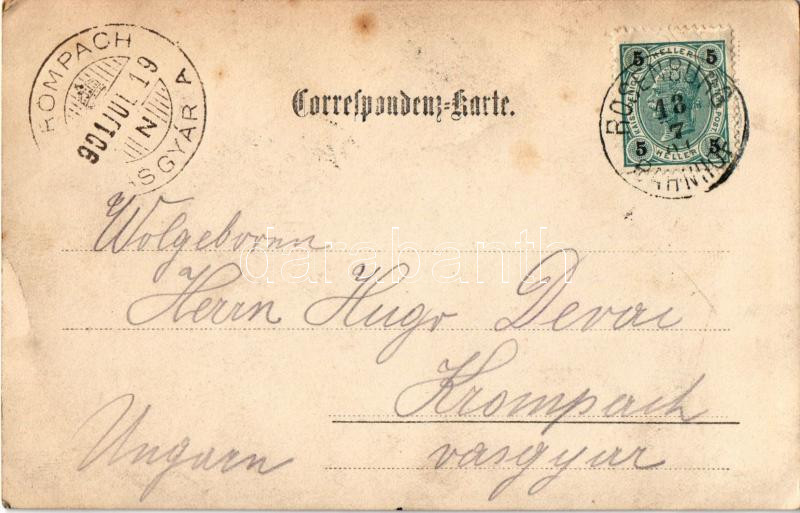 KROMPACH
901 JUL 19
N
VASGYÁR
Correspondenz-Karte.
5 HELLER 5
5 HELLER 5
ROSENBURG
18
7
01
BAHNHOF
Wolgeboren
darabanth
Herrn Hugo Devai
Krompach
Ungarn vasgyar